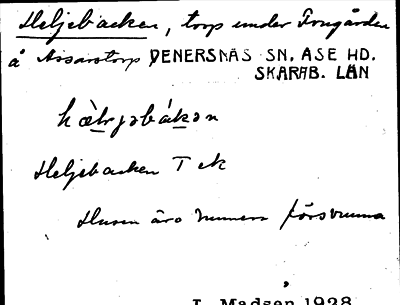 Heljebacken, torp under Frugården
å Assarstorp VENERSNÄS SN. ÅSE HD.
SKARAB. LÄN
hæ̀ljabákan
Heljebacken T ek
Husen äro numera försvunna
L. Madsen 1928